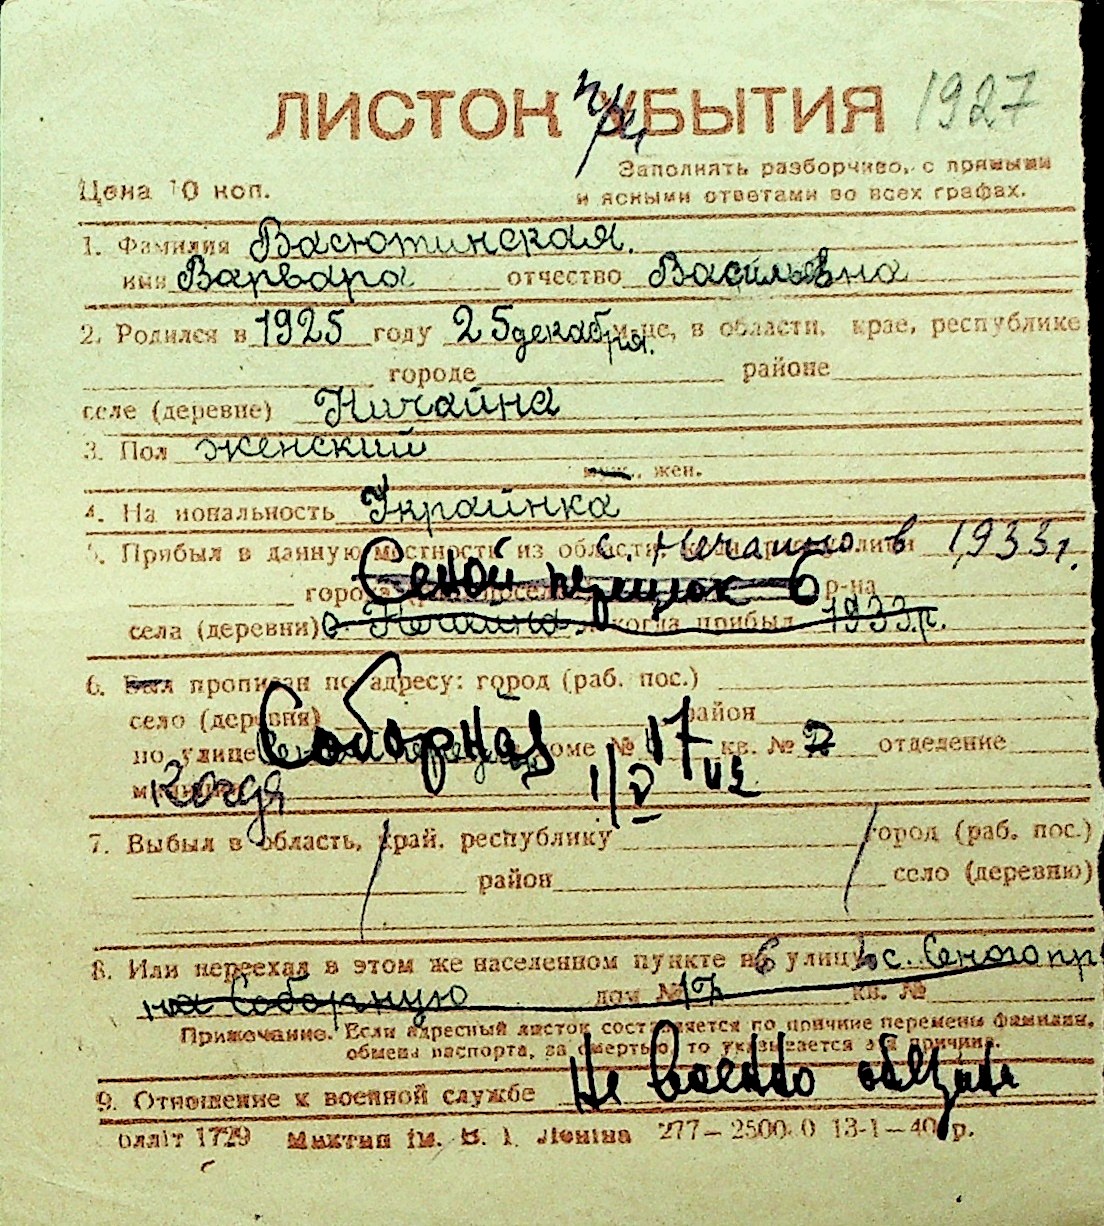 ЛИСТОК УБЫТИЯ 1927
при
Заполнять разборчиво, с прямыми
Цена 10 коп. и ясными ответами во всех графах.
1. Фамилия Васютинская.
имя Варвара отчество Васильевна
2. Родился в 1925 году 25 декабря. м-це, в области, крае, республике
городе районе
селе (деревне) Ничайна
3. Пол женский
муж., жен.
4. Национальность Украинка
5. Прибыл в данную местность из области, с. Нечаино в 1933 г.
Сеной переулок 6 р-на
села (деревни) с. Нечаина когда прибыл 1933 р.
6. Был прописан по адресу: город (раб. пос.)
село (деревня) район
по улице Соборная доме № 17 кв. № 2 отделение
Когда 1/V 42
7. Выбыл в область, край, республику город (раб. пос.)
район село (деревню)
8. Или переехал в этом же населенном пункте на 6 улицу с. Сеного пр
на Соборную дом № 17 кв. №
Примечание. Если адресный листок составляется по причине перемены фамилии,
обмена паспорта, за смертью, то указывается эта причина.
9. Отношение к военной службе Не военно обязан
Оллiт 1729 Миктип iм. В. I. Ленiна 277—2500.0 13-1—40 р.